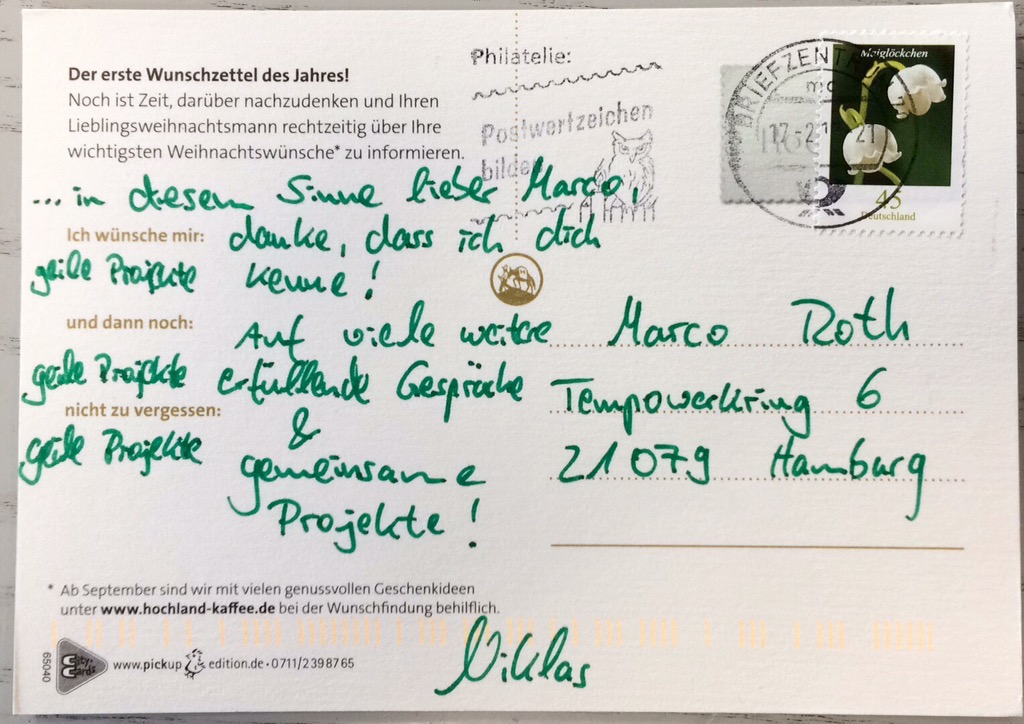 Der erste Wunschzettel des Jahres!
Noch ist Zeit, darüber nachzudenken und Ihren
Lieblingsweihnachtsmann rechtzeitig über Ihre
wichtigsten Weihnachtswünsche* zu informieren.
... in diesem Sinne lieber Marco,
Ich wünsche mir: danke, dass ich dich
geile Projekte kenne!
und dann noch: Auf viele weitere
geile Projekte erfüllende Gespräche
nicht zu vergessen: &
geile Projekte gemeinsame
Projekte!
Philatelie:
Postwertzeichen
bilde
BRIEFZENT
17.-2.21
21
Maiglöckchen
45
Deutschland
Marco Roth
Tempowerkring 6
21079 Hamburg
* Ab September sind wir mit vielen genussvollen Geschenkideen
unter www.hochland-kaffee.de bei der Wunschfindung behilflich.
Niklas
65040
City-Cards
www.pickup edition.de · 0711/2398765